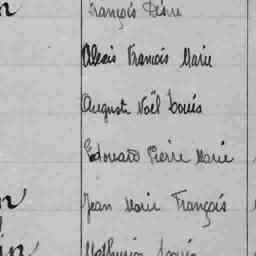 François Désiré
Alexis François Marie
Auguste Noël Louis
Edouard Pierre Marie
Jean Marie François
Mathurin Louis